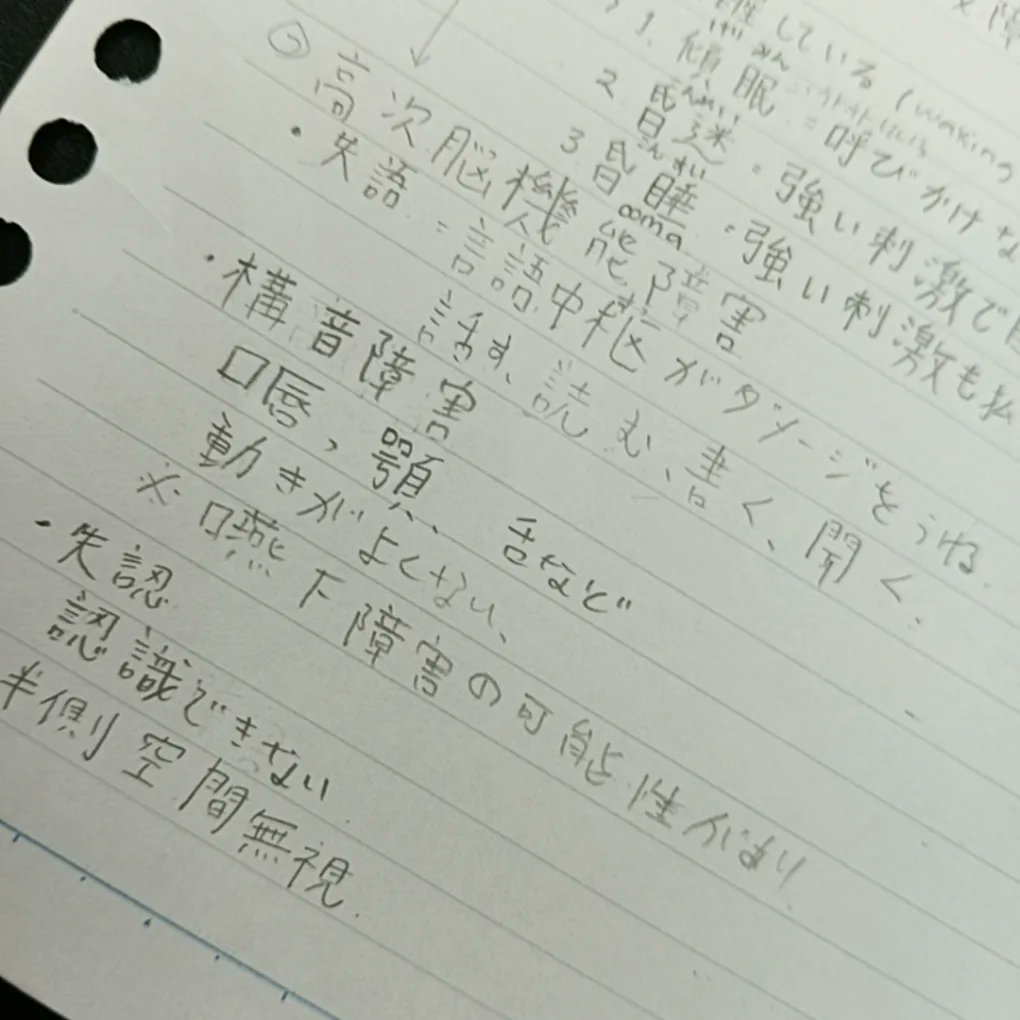 障
している (waking
1. 傾眠 : 呼びかけな
けいみん
2. 昏迷 : 強い刺激で
こんめい
3 昏睡 : 強い刺激も払
こんすい
coma
② 高次脳機能障害
・失語 : 言語中枢がダメージをうける.
話す、読む、書く、聞く.
・構音障害
口唇, 顎、舌など
動きがよくない、
※ 嚥下障害の可能性があり
・失認
認識できない
半側空間無視.